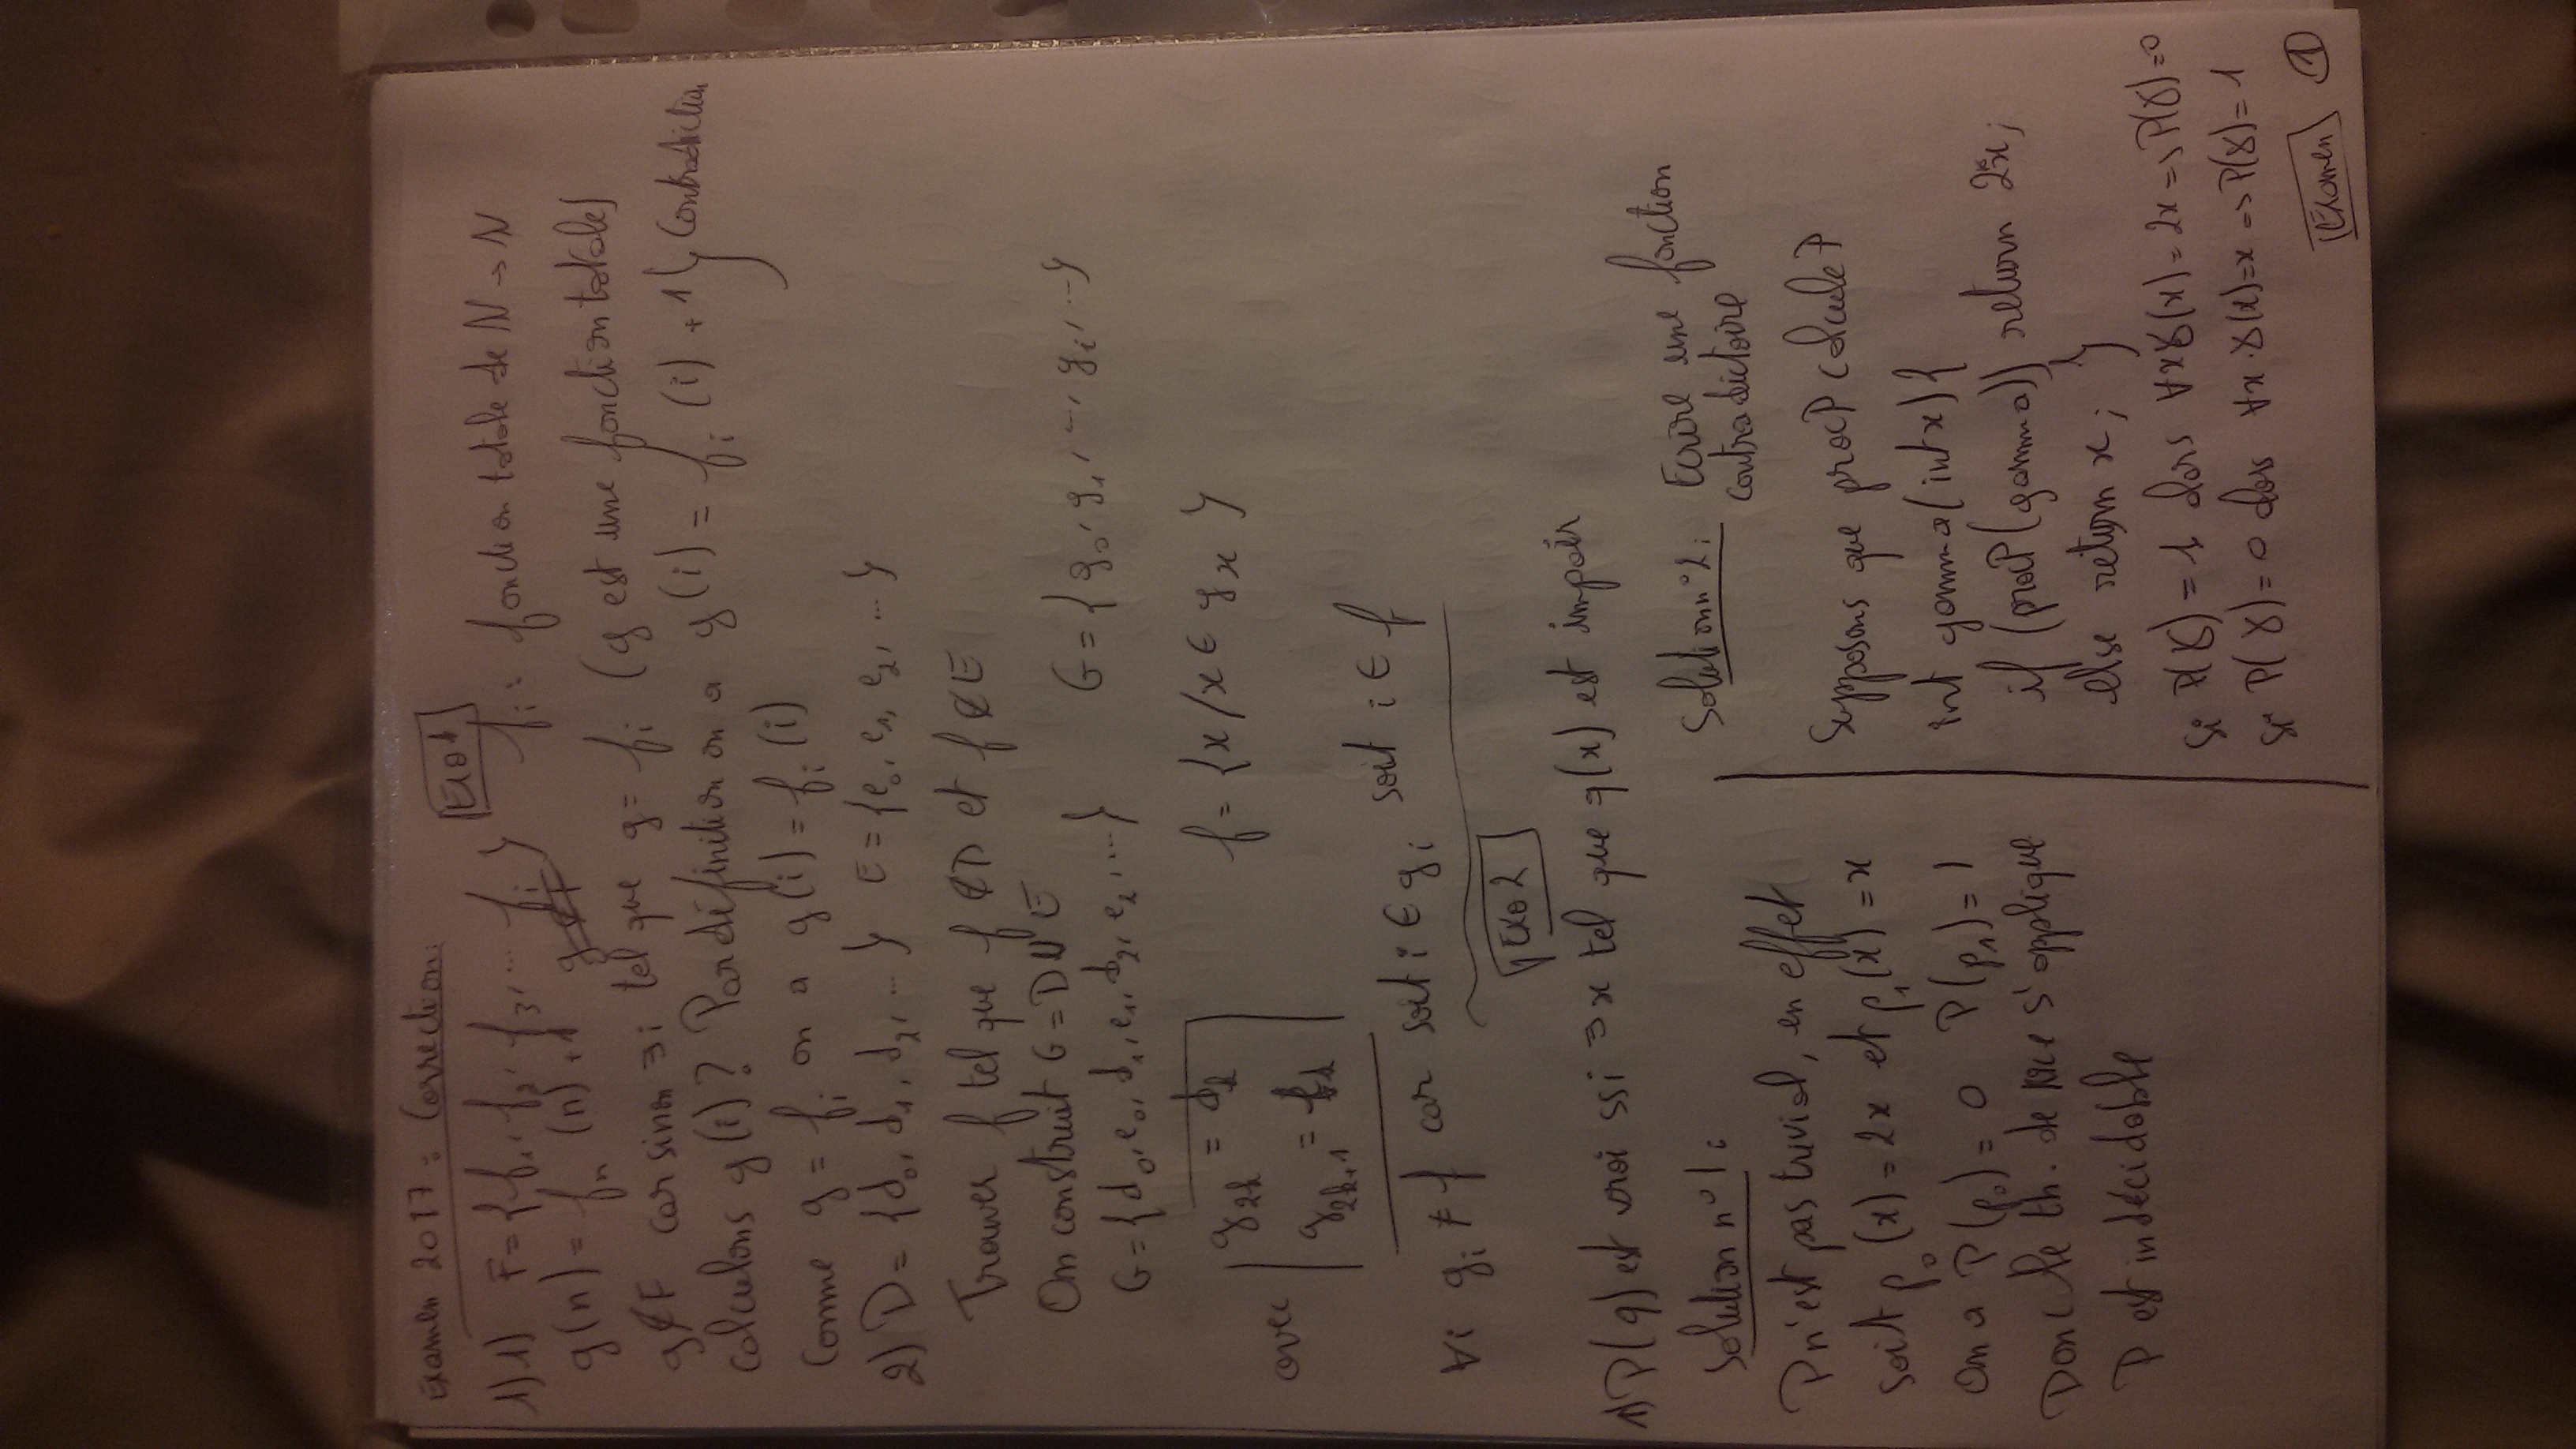 Examen 2017 : Correction:
Exo 1
1) 1) F = {f1, f2, f3, ... fi } fi : fonction totale de N → N
g(n) = fn (n) + 1
g ∉ F car sinon ∃i tel que g = fi (g est une fonction totale)
Calculons g(i) ? Par définition on a g(i) = fi (i) + 1 } Contradiction
Comme g = fi on a g(i) = fi (i)
2) D = {d0, d1, d2, ... } E = {e0, e1, e2, ... }
Trouver f tel que f ∉ D et f ∉ E
On construit G = D ∪ E
G = {d0, e0, d1, e1, d2, e2, ... } G = {g0, g1, ..., gi, ... }
avec | g2k = dk
g2k+1 = ek
f = {x / x ∉ gx }
∀i gi ≠ f car soit i ∈ gi soit i ∈ f
Exo 2
1) P(q) est vrai ssi ∃x tel que q(x) est impair
Solution n°1 :
P n'est pas trivial, en effet
soit p0 (x) = 2x et p1 (x) = x
On a P(p0) = 0 P(p1) = 1
Donc le th. de Rice s'applique
P est indécidable
Solution n°2 : Ecrire une fonction
contradictoire
Supposons que procP calcule P
int gamma (int x) {
if (procP(gamma)) return 2*x;
else return x; }
Si P(γ) = 1 alors ∀x γ(x) = 2x => P(γ) = 0
Si P(γ) = 0 alors ∀x γ(x) = x => P(γ) = 1
Examen 1